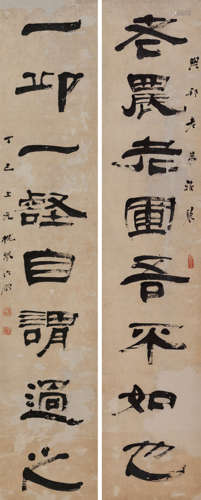 老農老圃吾不如也
一邱一壑自謂過之
丁巳上元